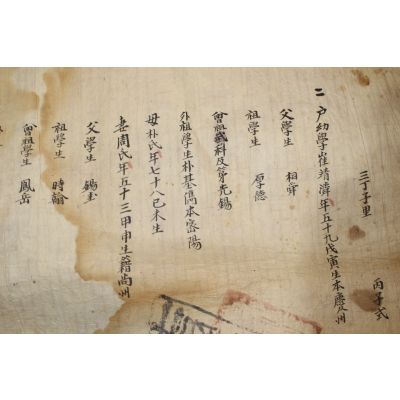 三丁子里 丙子式
二戶幼學崔靖濟年五十九戊寅生本慶州
父學生 相舜
祖學生 厚德
曾祖武科及第光錫
外祖學生朴基僑本密陽
母朴氏年七十八己未生
妻周氏年五十三甲申生籍尙州
父學生 錫圭
祖學生 時翰
曾祖學生 鳳岳